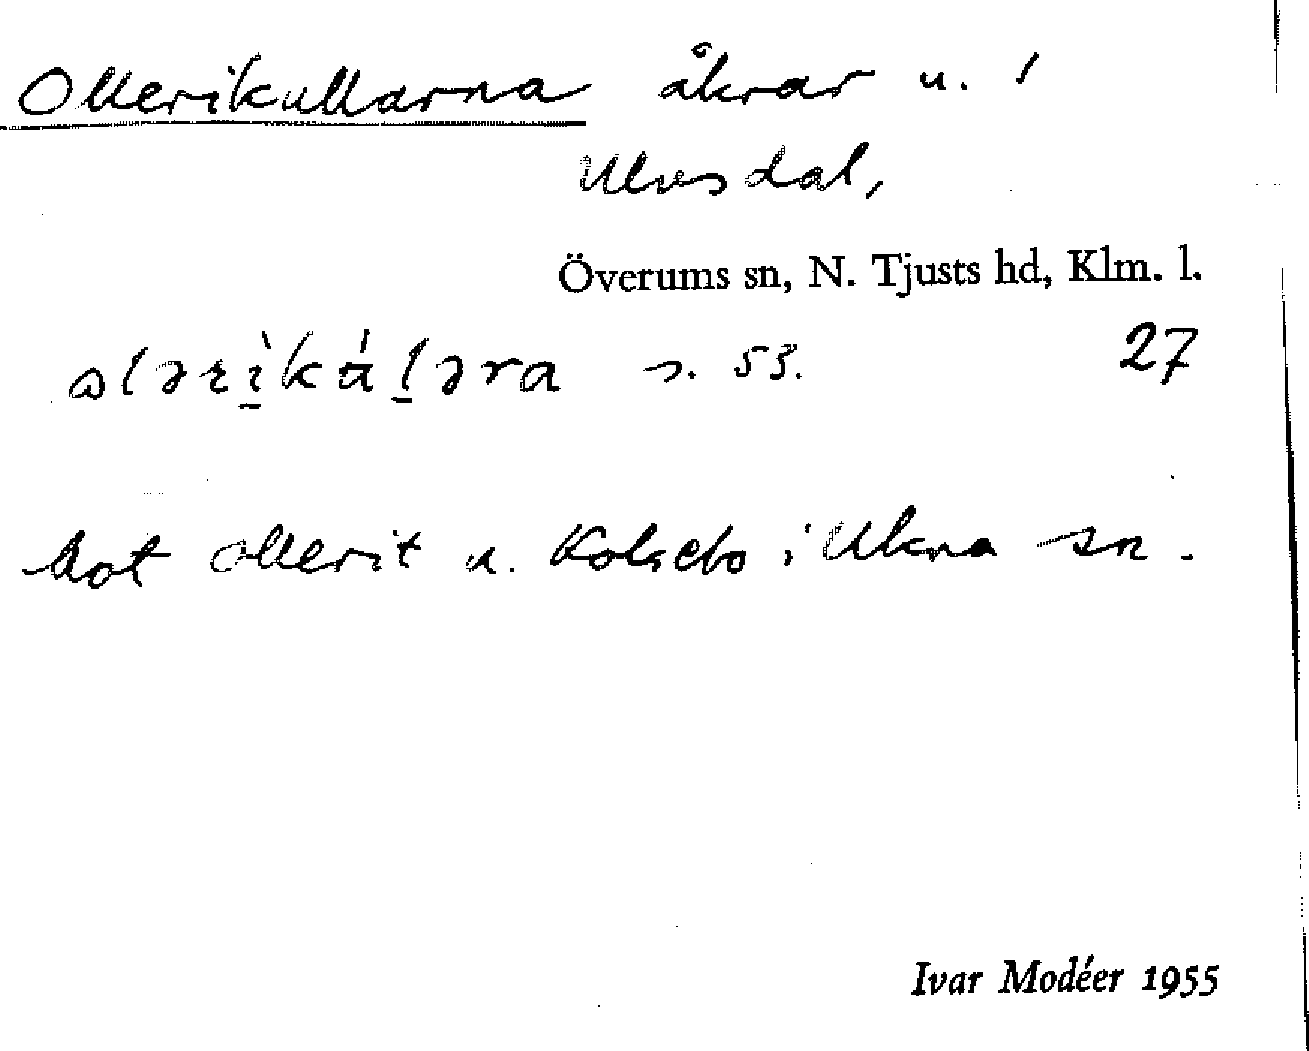 Ollerikullarna åkrar u. 1
Ulvsdal,
Överums sn, N. Tjusts hd, Klm. l.
ɷlərìkúlˌəra s. 53. 27
Mot Ollerit u. Kolsebo i Ukna sn.
Ivar Modéer 1955